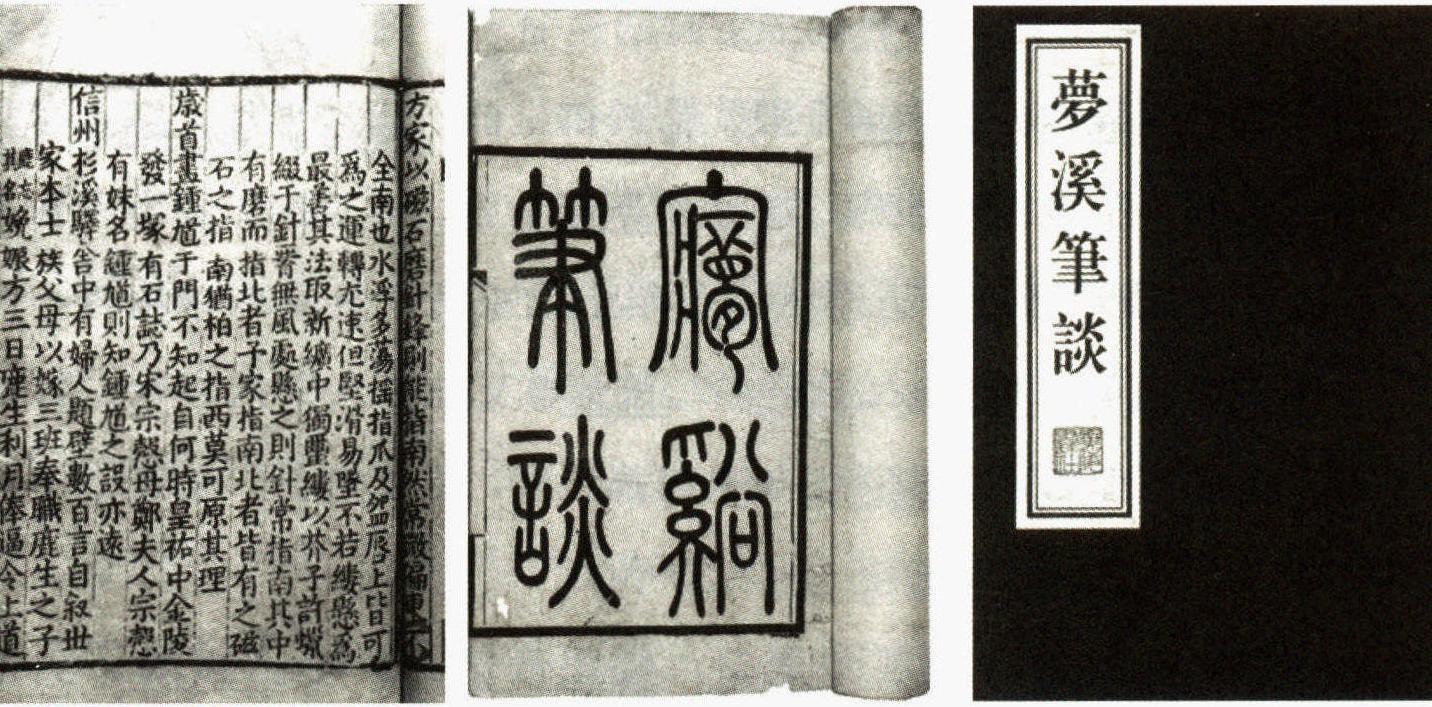 方家以磁石磨針鋒則能指南然常微偏東不
全南也水浮多蕩搖指爪及盌脣上皆可
爲之運轉尤速但堅滑易墜不若縷懸爲
最善其法取新纊中獨繭縷以芥子許蠟
綴于針腰無風處懸之則針常指南其中
有磨而指北者予家指南北者皆有之磁
石之指南猶柏之指西莫可原其理
歳首畫鍾馗于門不知起自何時皇祐中金陵
發一塚有石誌乃宋宗愨母鄭夫人宗愨
有妹名鍾馗則知鍾馗之設亦遠
信州杉溪驛舎中有婦人題壁數百言自叙世
家本士族父母以嫁三班奉職鹿生之子
鹿忘其名娩娠方三日鹿生利月俸逼令上道
夢谿
筆談
夢溪筆談